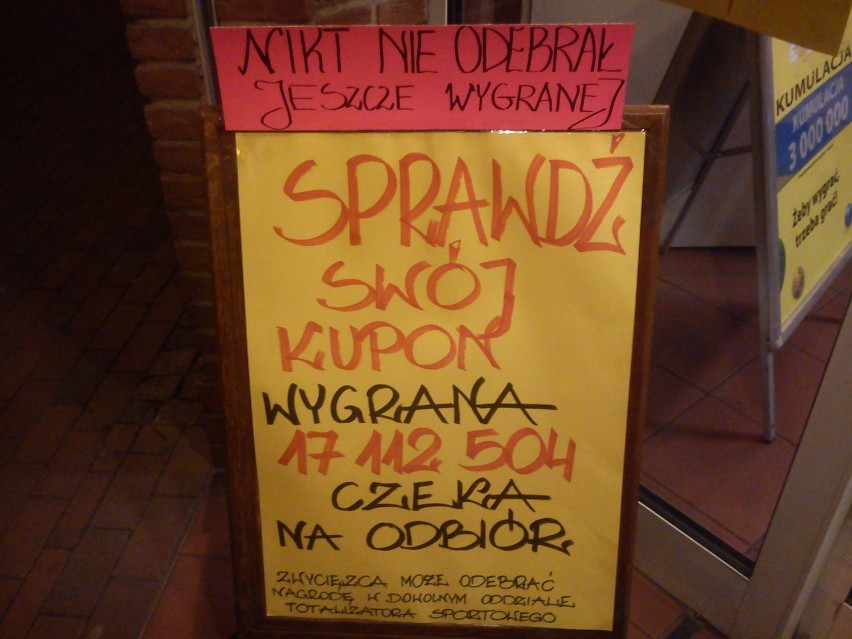 NIKT NIE ODEBRAŁ
JESZCZE WYGRANEJ
SPRAWDŹ
SWÓJ
KUPON
WYGRANA
17 112 504
CZEKA
NA ODBIÓR
ZWYCIĘZCA MOŻE ODEBRAĆ
NAGRODĘ W DOWOLNYM ODDZIALE
TOTALIZATORA SPORTOWEGO
KUMULACJA
KUMULACJA
3 000 000
Żeby wygrać,
trzeba grać!